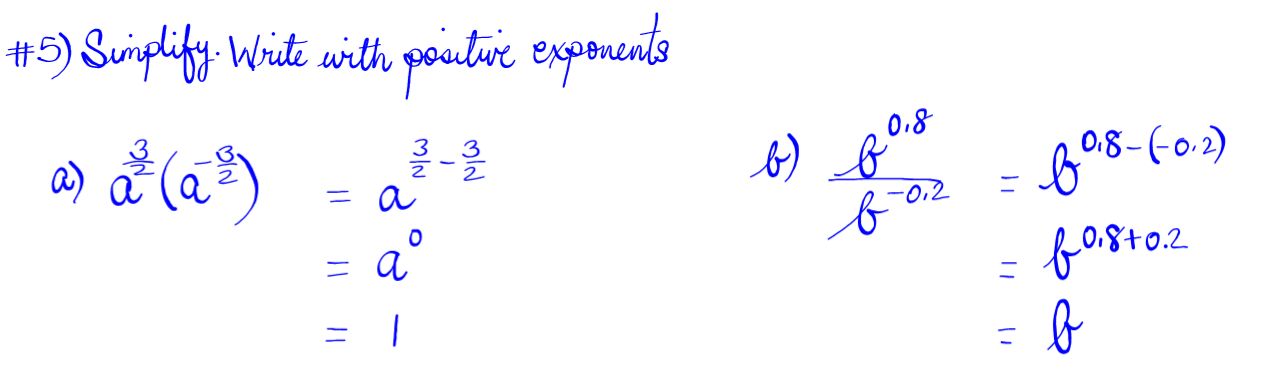 #5) Simplify. Write with positive exponents
a) a^{3/2}(a^{-3/2}) = a^{3/2 - 3/2}
= a^0
= 1
b) b^{0.8}/b^{-0.2} = b^{0.8-(-0.2)}
= b^{0.8+0.2}
= b